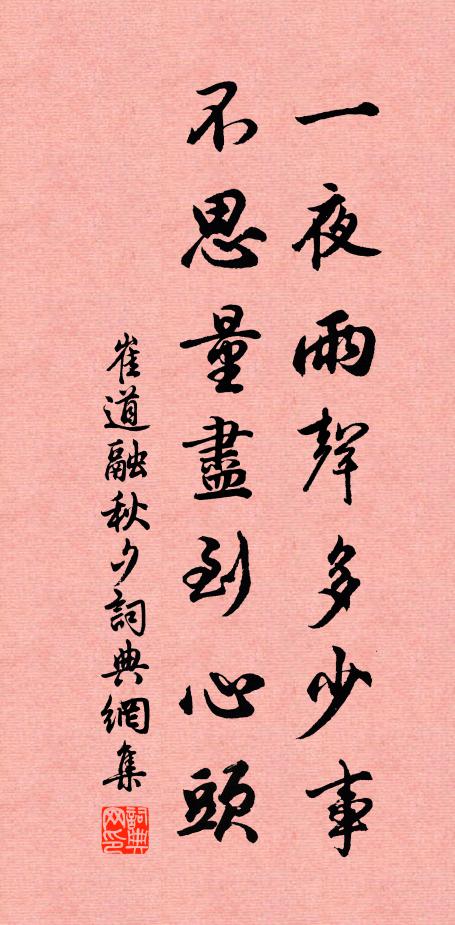 一夜雨聲多少事
不思量盡到心頭
崔道融秋夕詞典網集
詞典网印